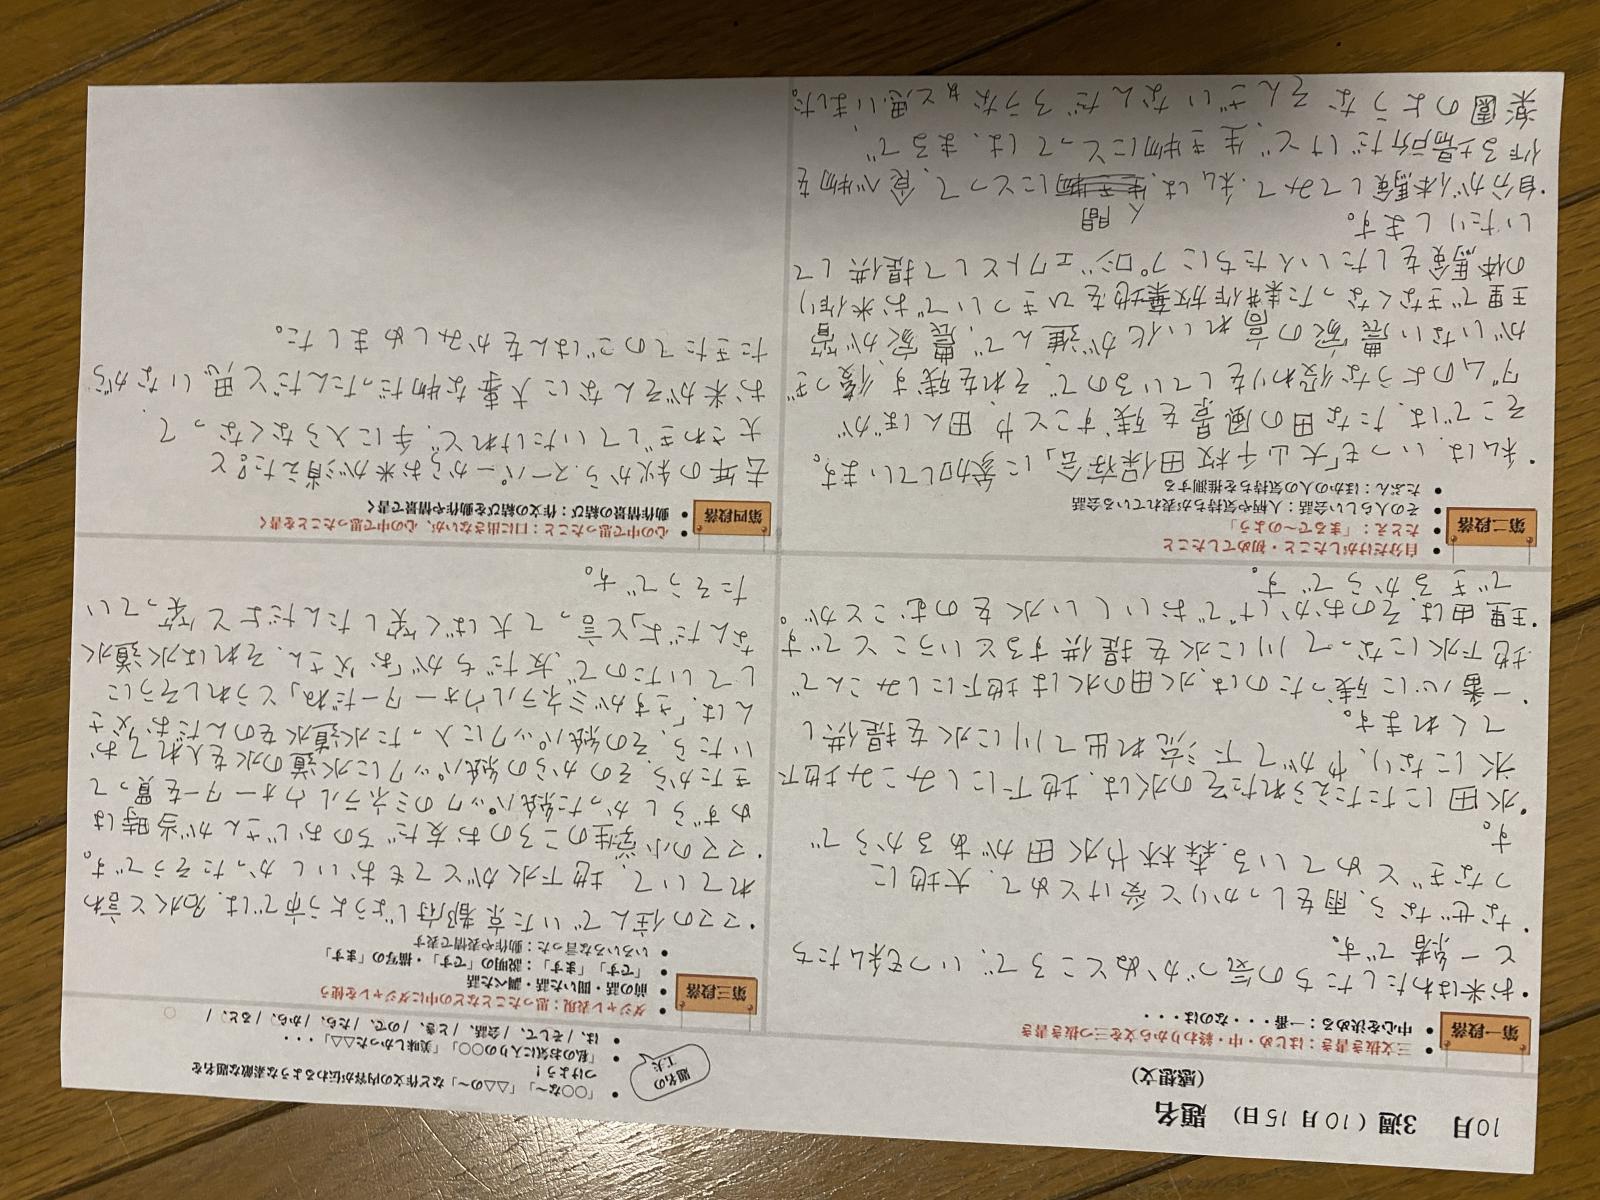 10月 3週（10月15日） 題名
（感想文）
題名の工夫
● 「○○な～」「△△の～」など作文の内容が伝わるような素敵な題名をつけよう！
● 「私のお気に入りの○○」「美味しかった△△」・・・
● は、/ そして、/ 会話、/ とき、/ ので、/ たら、/ から、/ と、/
第一段落
● 三文抜き書き：はじめ・中・終わりから文を三つ抜き書き
● 中心を決める：一番・・・なのは・・・
・お米はわたしたちの気づかぬところで、いつも私たち
と一緒です。
・なぜなら、雨をしっかりと受けとめて、大地に
つなぎとめている、森林や水田があるからで
す。
・水田にたたえられたその水は、地下にしみこみ地下
水になり、やがて下流れ出て川に水を提供し
てくれます。
・一番心に残ったのは、水田の水は地下にしみこんで
地下水になって川に水を提供するということです。
・理由は、そのおかげでおいしい水をのむことが
できるからです。
第二段落
● 自分だけがしたこと・初めてしたこと
● たとえ：「まるで～のよう」
● その人らしい会話：人柄や気持ちが表れている会話
● たぶん：ほかの人の気持ちを推測する
・私は、いつも「大山千枚田保存会」に参加しています。
そこでは、たな田の風景を残すことや、田んぼが
ダムのような役わりをしているので、それを残す、後つぎ
がいない農家の高れい化が進んで、農家が管
理できなくなった耕作放棄地をひきついでお米作り
の体験をしたい人たちにプロジェクトとして提供して
いたりします。
・自分が体験してみて、私は、人間にとって、食べ物を
作る場所だけど、生き物にとっては、まるで
楽園のようなそんざいなんだろうなぁと思いました。
第三段落
● ダジャレ表現：思ったことなどの中にダジャレを使う
● 前の話・聞いた話・調べた話
● 「です」「ます」：説明の「です」・描写の「ます」
● いろいろな言った：動作や表情で表す
・ママの住んでいた京都府じょうよう市では、名水と言わ
れていて、地下水がとてもおいしかったそうです。
・ママの小学生のころのお友だちのおじさんが当時は
めずらしかった紙パックのミネラルウォーターを買って
きたから、そのからの紙パックに水道の水を入れてお
いたら、その紙パックに入った水道水をのんだお父さ
んは、「さすがミネラルウォーターだね」とうれしそうに
していたので、友だちが「お父さん、それは水道水
なんだよ」と言って大ばく笑したんだよと笑ってい
たそうです。
第四段落
● 心の中で思ったこと：口に出さないが、心の中で思ったことを書く
● 動作情景の結び：作文の結びを動作や情景で書く
去年の秋から、スーパーからお米が消えた？と
大さわぎしていたけれど、手に入らなくなって、
お米がそんなに大事な物だったんだと思いながら
たきたてのごはんをかみしめました。